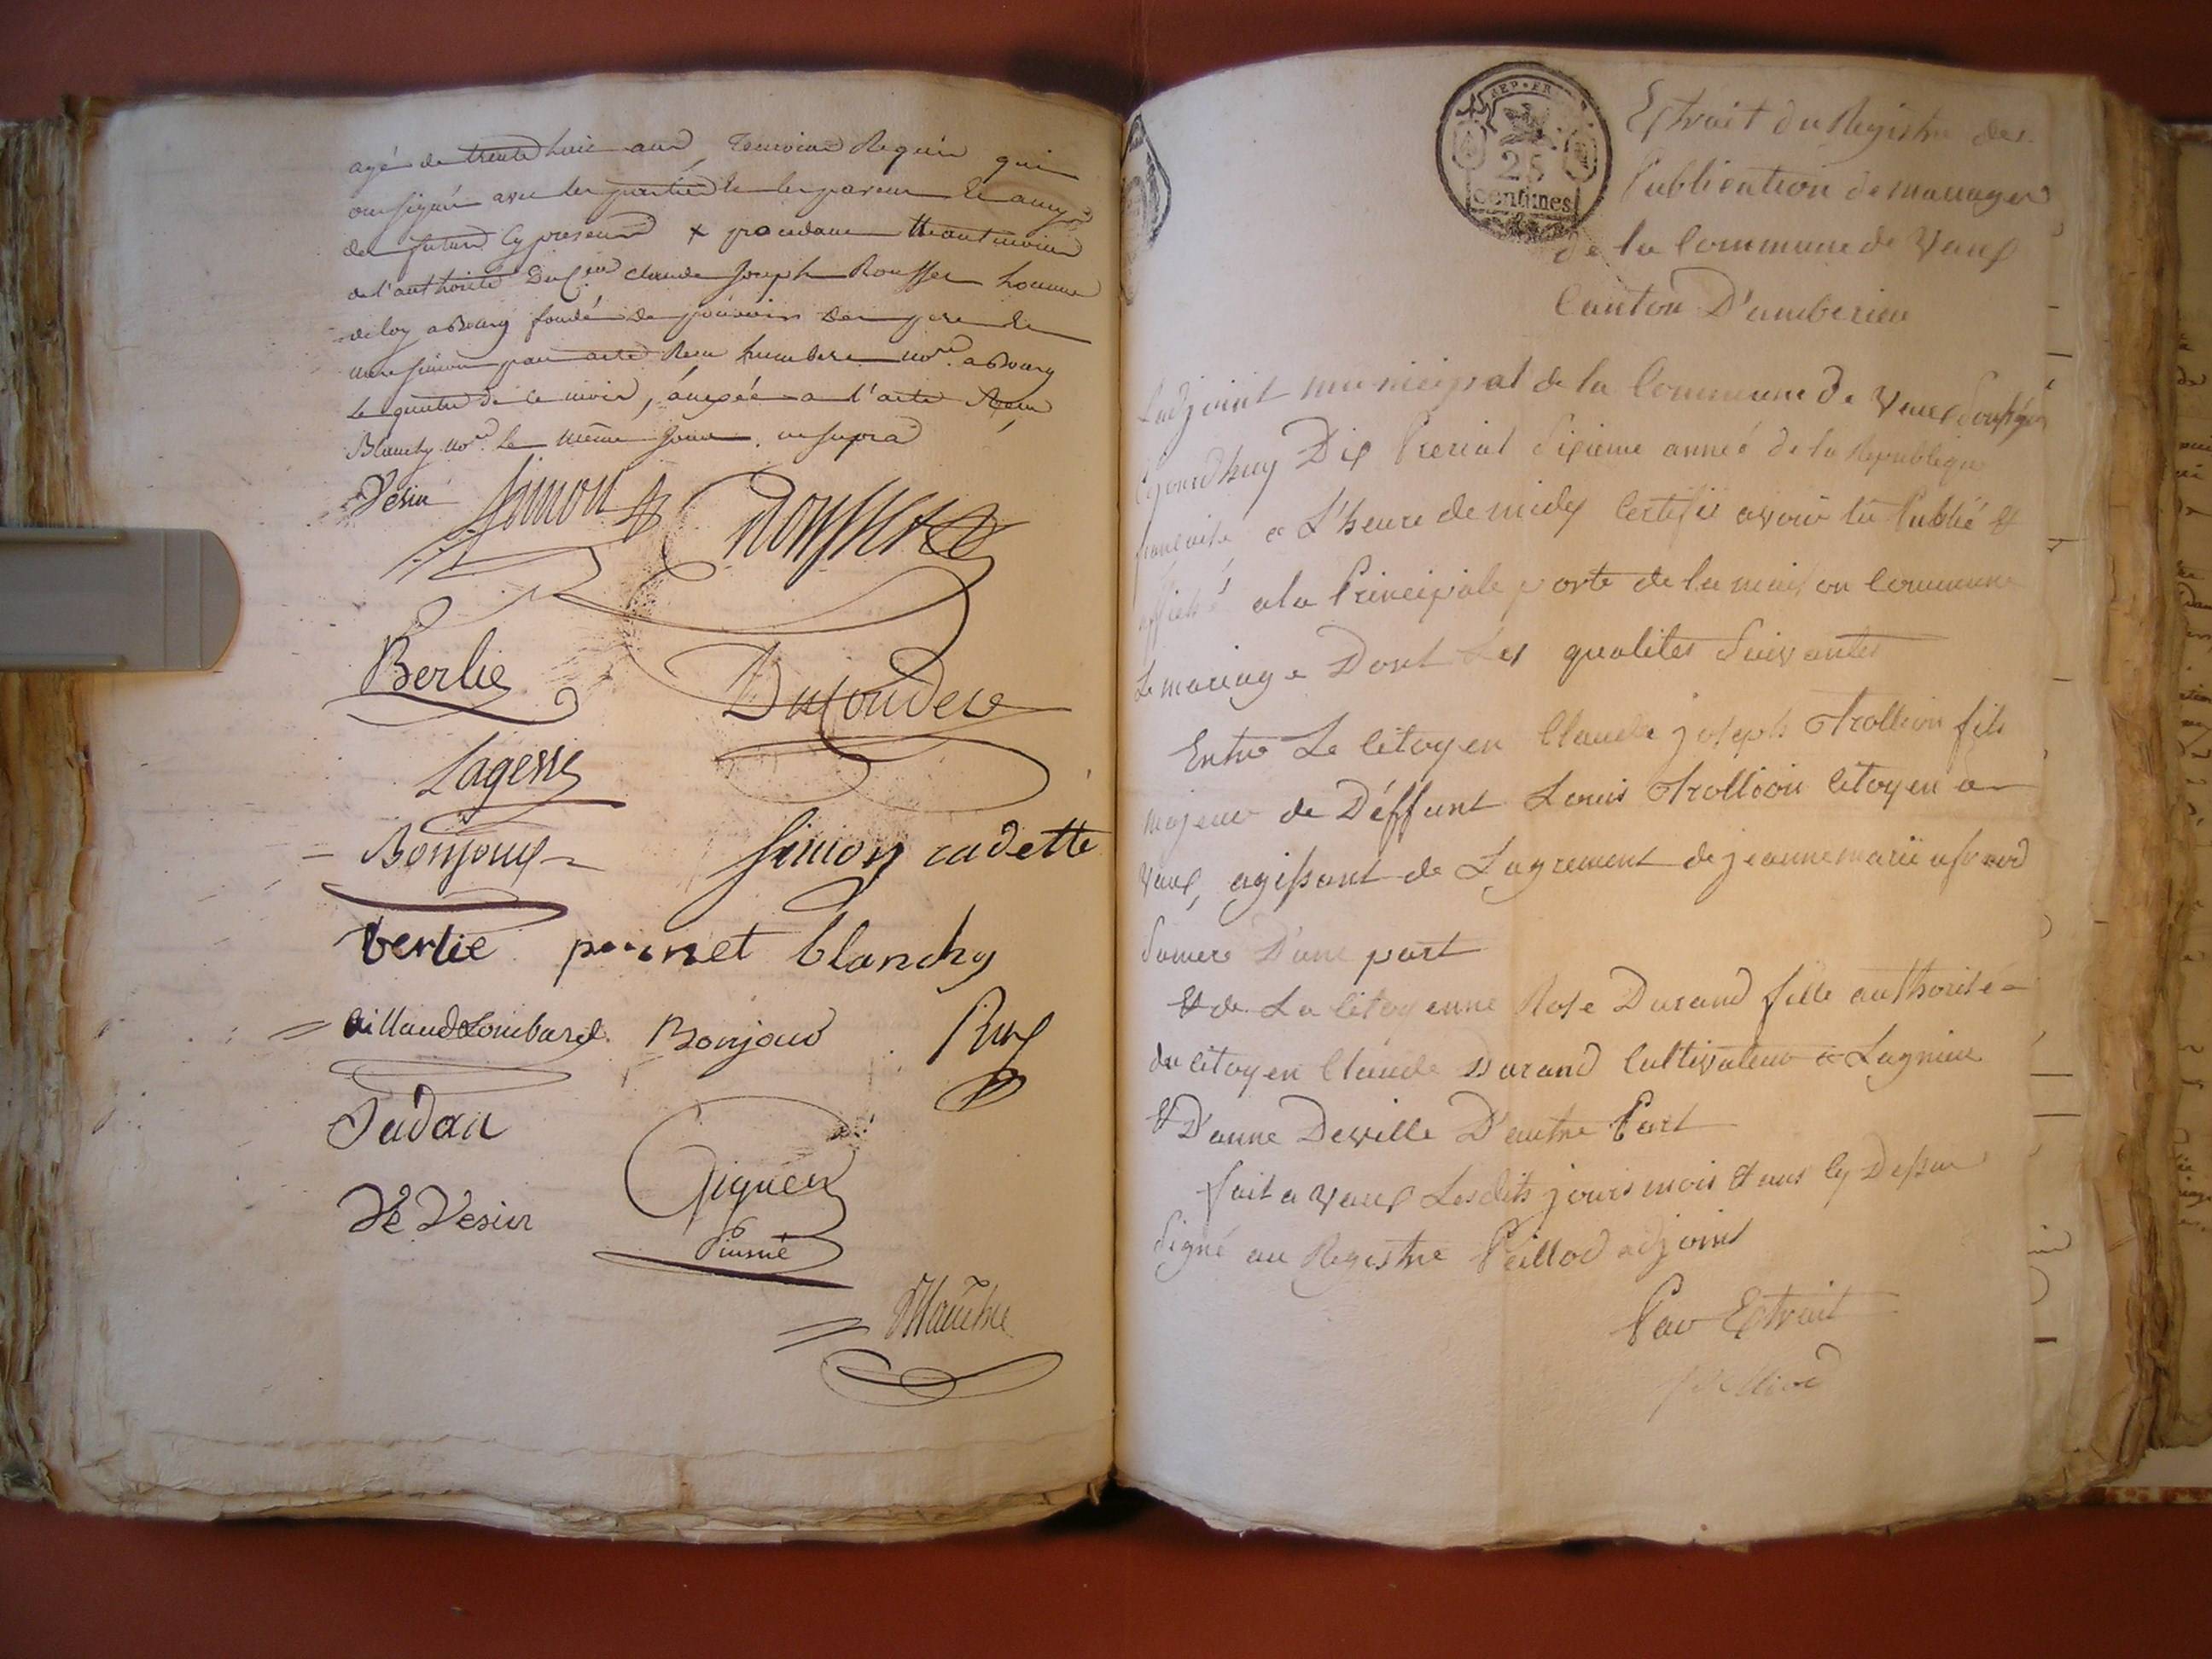 agé de trente huit ans, temoins Requis qui
ont signé avec les parties les parens et amys
des futurs cy presens x procedant neantmoins
de l'authorité Du Cen Claude Joseph Rousset homme
de loy a Bourg fondé de pouvoirs
Simon par acte Reçu humbert nore a Bourg
Le quatre de ce mois, anexée a l'acte Reçu
Blanchy nore. Le même jour. ut supra
Vesin Simon Rousset
Berlie Dujondere
Lagesse
Bonjour Simon cadette
berlie pernet blanchy
aillaud Lombard Bonjour Rux
Tadan
Ve Vesin Giguet
REP. FR
25
centimes
Extrait du Registre des
Publication de mariages
de la Commune de Vaux
Canton D'amberieu
Ladjoint municipal de la Commune de Vaux Soussigné
Cejourdhuy Dix Prerial dixieme année de la Republique
francaise a L'heure de midy Certifie avoir lu Publié &
affiché a la Principale porte de la maison Commune
Le mariage Dont Les qualites Suivantes
Entre Le Citoyen Claude joseph Trollion fils
majeur de Déffunt Louis Trollion Citoyen a
Vaux, agissant de Lagrement de jeanne marie
Samere D'une part
& de La Citoyenne Rose Durand fille authorisé
du Citoyen Claude Durand Cultivateur a Lagnieu
& D'anne Deville D'autre Part
fait a Vaux Lesdits jours mois & ans Cy Dessus
Signé au Registre Peillod adjoint
Par Extrait
Peillod